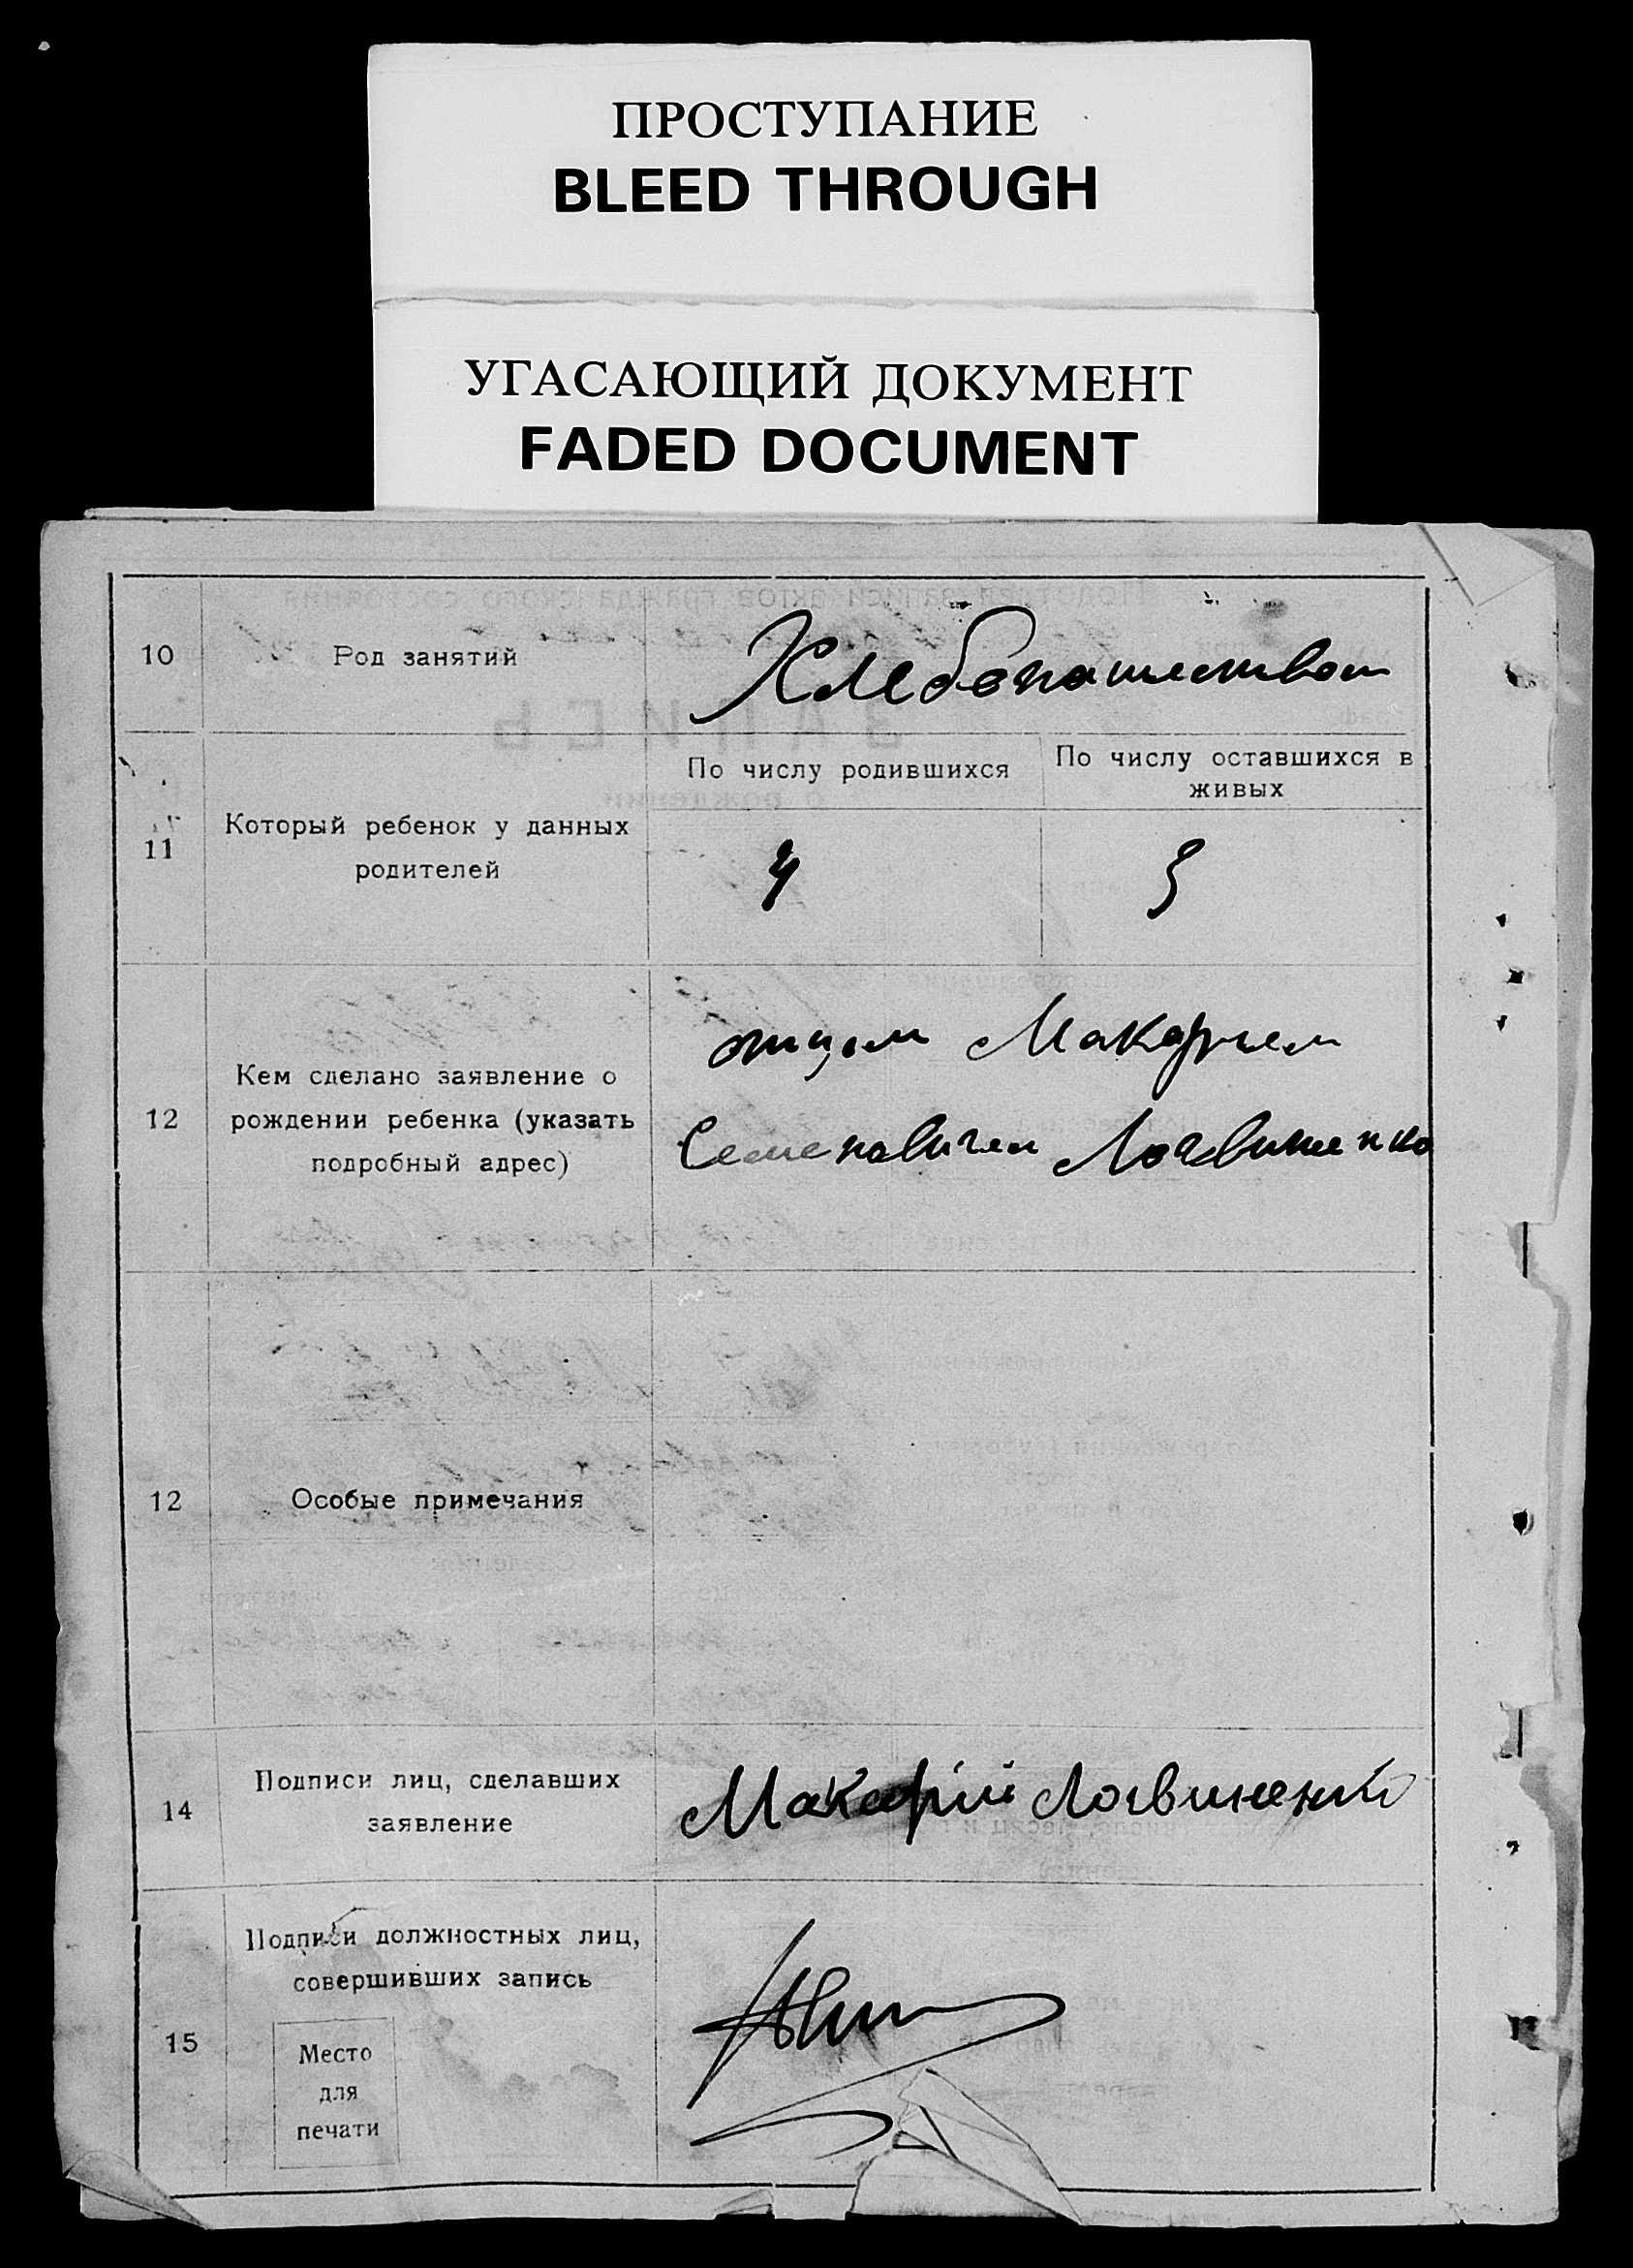 ПРОСТУПАНИЕ
BLEED THROUGH
УГАСАЮЩИЙ ДОКУМЕНТ
FADED DOCUMENT
10 Род занятий Хлебопашеством
11 Который ребенок у данных родителей
По числу родившихся
По числу оставшихся в
живых
4 3
12 Кем сделано заявление о
рождении ребенка (указать
подробный адрес)
отцом Макарием
Семеновичем Логвиненко
12 Особые примечания
14 Подписи лиц, сделавших
заявление
Макарий Логвиненко
15 Подписи должностных лиц,
совершивших запись
Место
для
печати